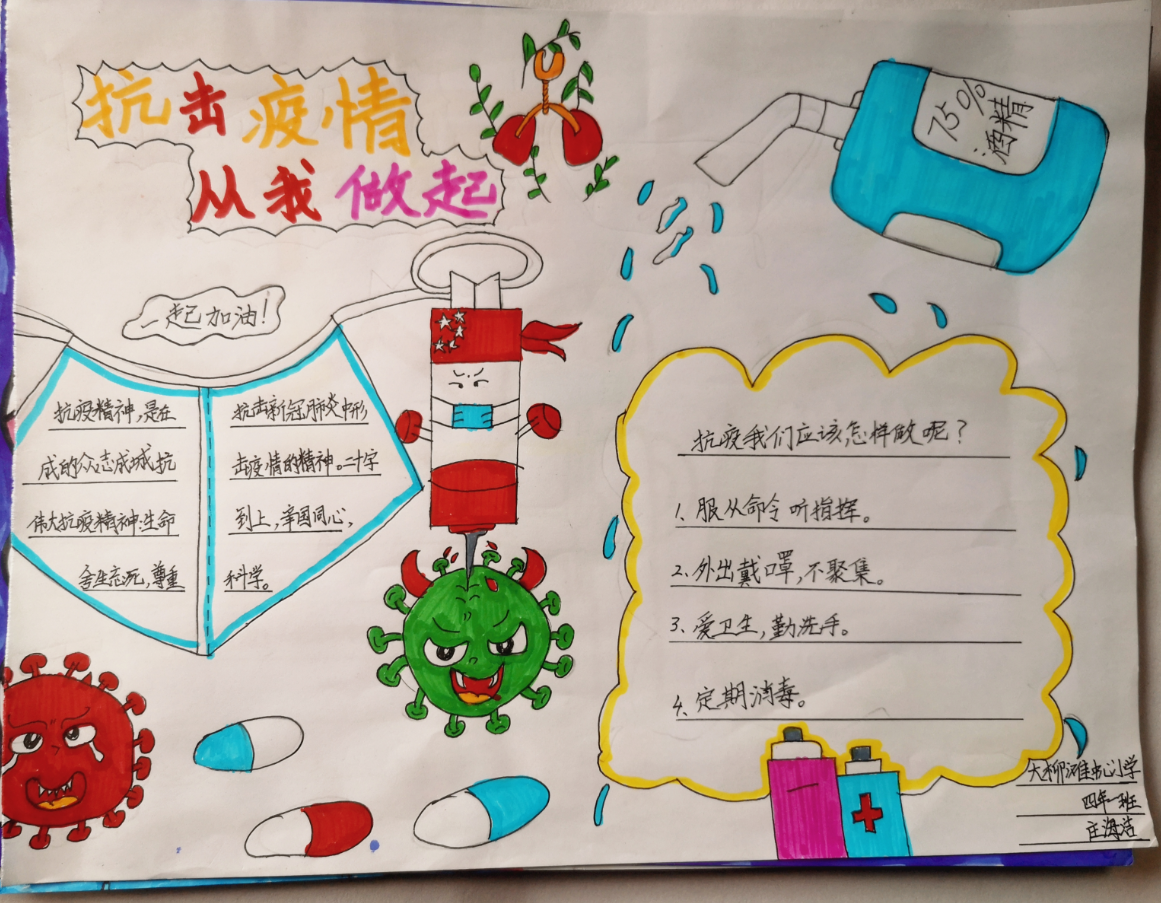 抗击疫情
从我做起
75%
酒精
一起加油!
抗疫精神,是在
成的众志成城抗
伟大抗疫精神:生命
舍生忘死,尊重
抗击新冠肺炎中形
击疫情的精神。二十字
到上,举国同心,
科学。
抗疫我们应该怎样做呢?
1、服从命令听指挥。
2、外出戴口罩,不聚集。
3、爱卫生,勤洗手。
4、定期消毒。
大柳滩中心小学
四年一班
庄海洁